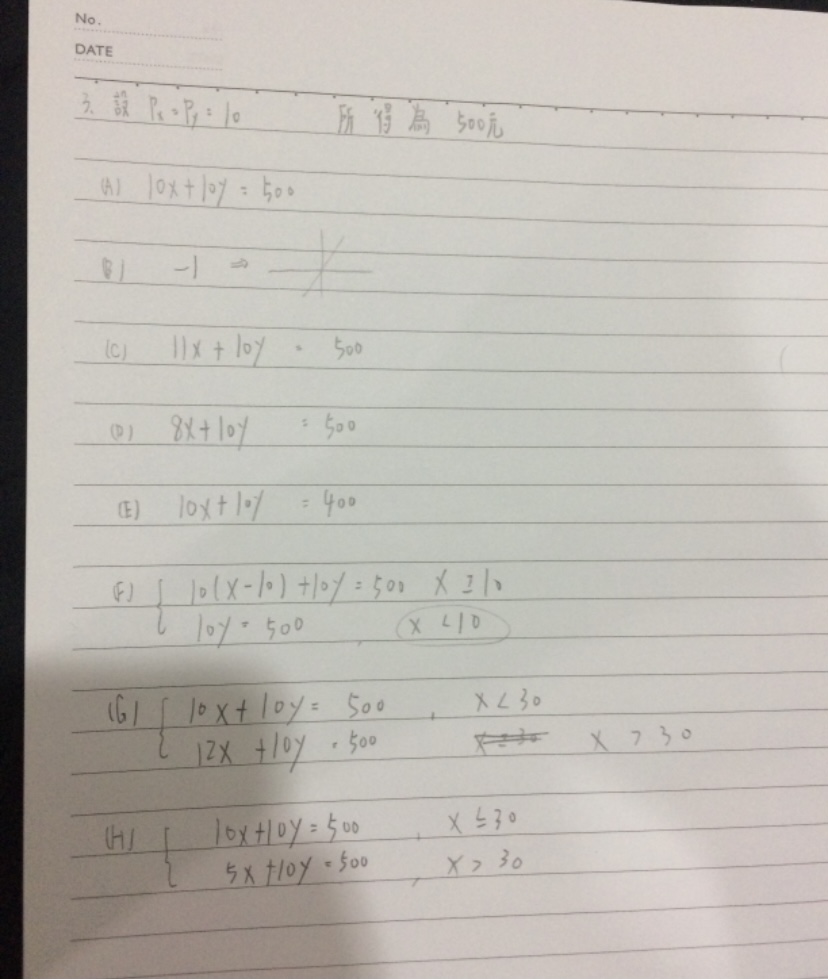 No.
DATE
3. 設 Px = Py = 10 所得為 500元
(A) 10x + 10y = 500
(B) -1 ⇒
(C) 11x + 10y = 500
(D) 8x + 10y = 500
(E) 10x + 10y = 400
(F) { 10(x-10) + 10y = 500 x ≥ 10
10y = 500 , x < 10
(G) { 10x + 10y = 500 , x < 30
12x + 10y = 500 x > 30
(H) { 10x + 10y = 500 , x ≤ 30
5x + 10y = 500 , x > 30